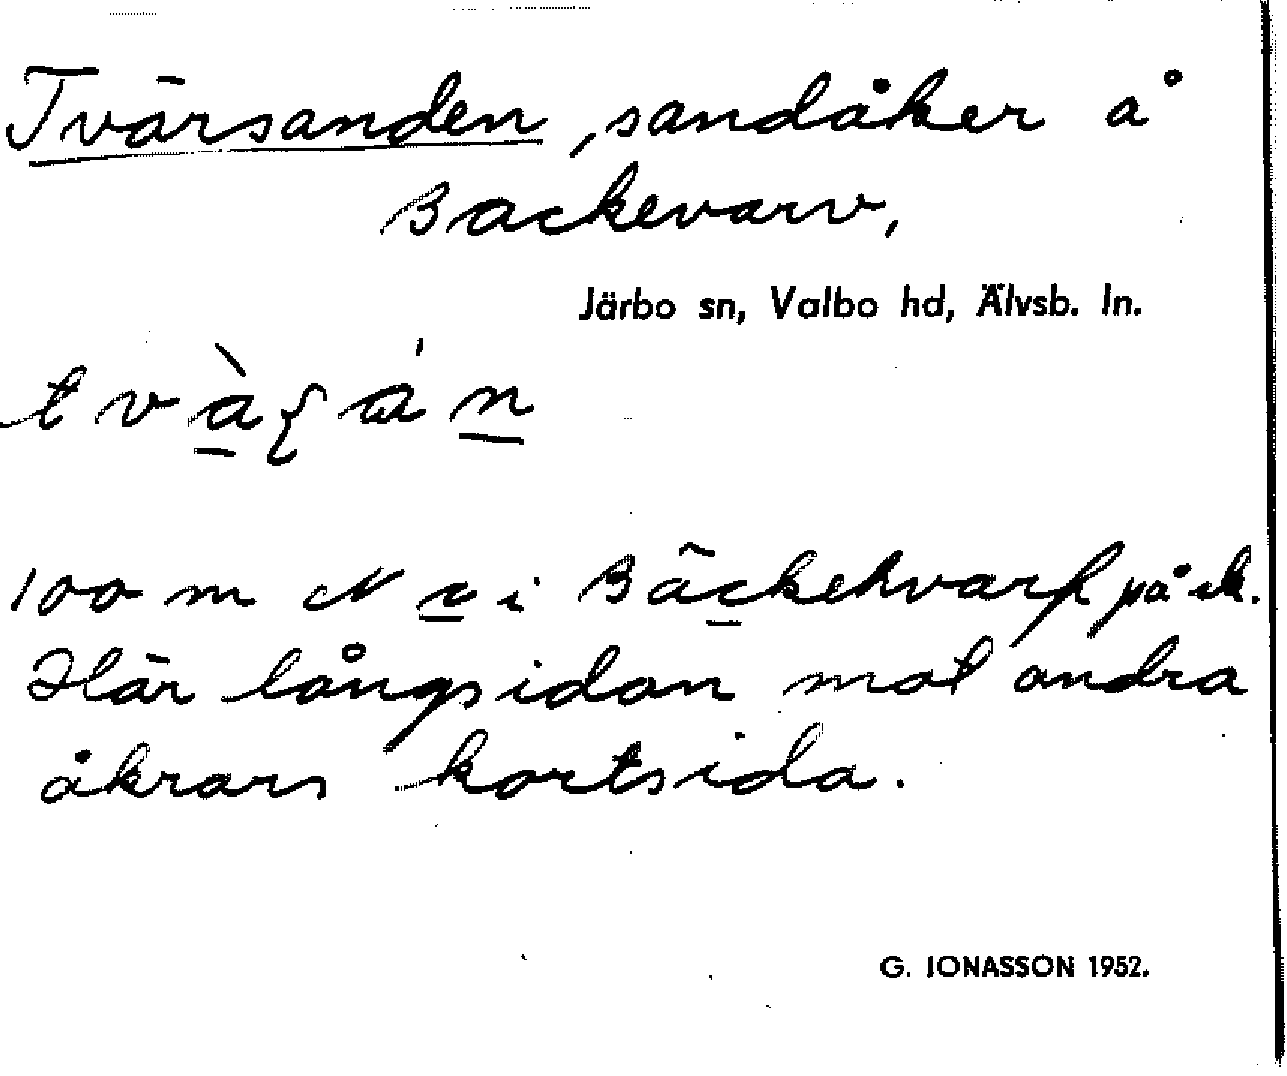 Tvärsanden, sandåker å
Backevarv,
Järbo sn, Valbo hd, Älvsb. ln.
100 m N c i Bäckehvarf på ek.
Här långsidan mot andra
åkrars kortsida.
G. IONASSON 1952.